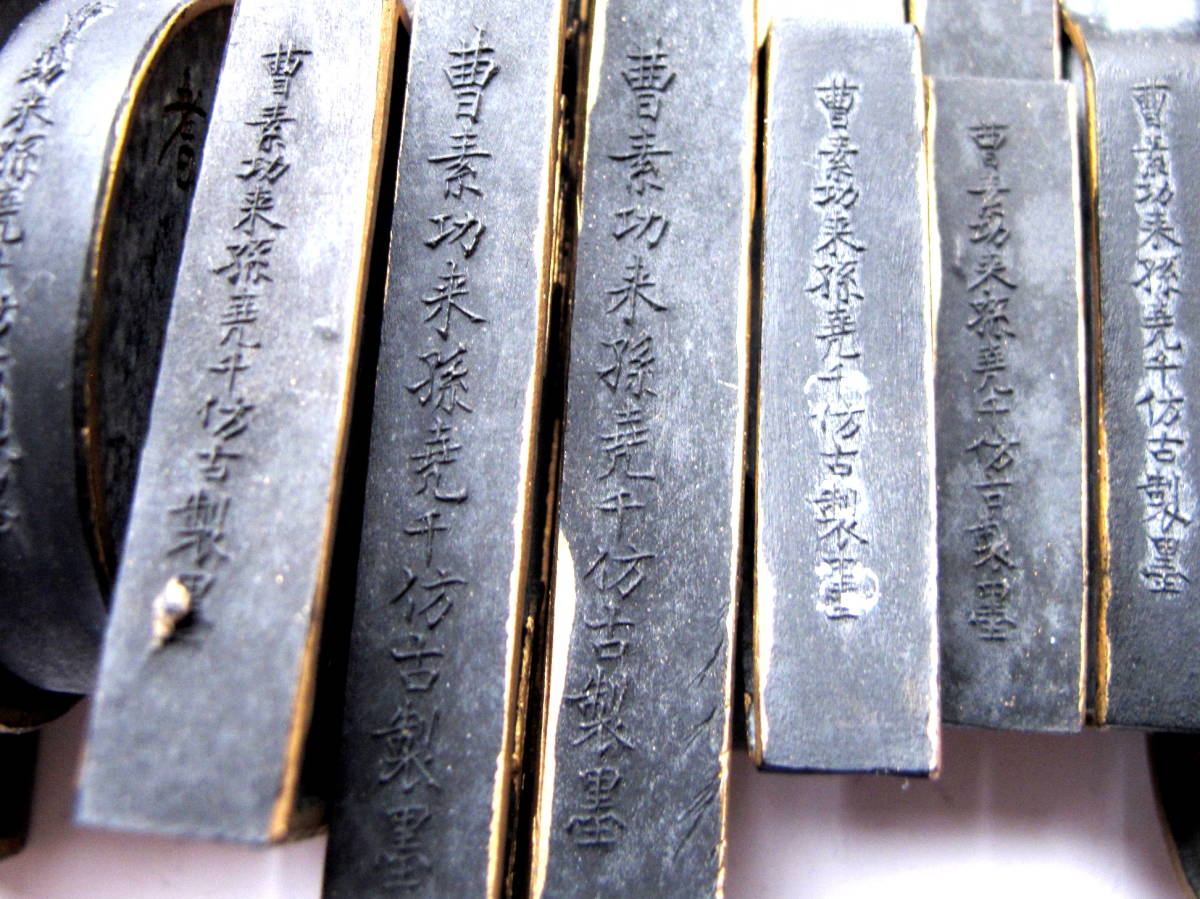 功来孫堯千
曹素功来孫堯千仿古製墨
曹素功来孫堯千仿古製墨
曹素功来孫堯千仿古製墨
曹素功来孫堯千仿古製墨
曹素功来孫堯千仿古製墨
曹素功来孫堯千仿古製墨